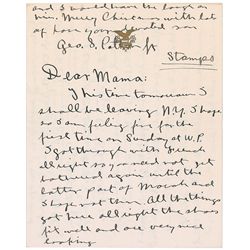 and I would have the boys or
mrs. Merry Christmas with lots
of love your devoted son
Geo. S. Patton Jr
Stamps
Dear Mama:
This time tomorrow I
shall be leaving N.Y. I hope
so I am feeling fine for the
first time on Sunday at W.P.
I got through with french
all right so you need not get
bothered again until the
latter part of March and I
hope not then. All the things
got here all right the shoes
fit well and are very nice
looking